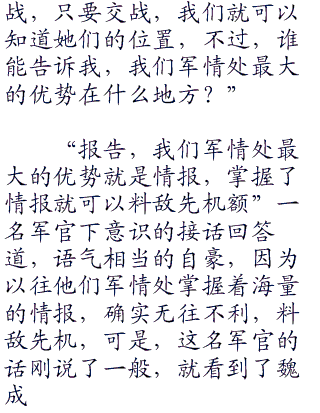 战，只要交战，我们就可以
知道她们的位置，不过，谁
能告诉我，我们军情处最大
的优势在什么地方？”
“报告，我们军情处最
大的优势就是情报，掌握了
情报就可以料敌先机额”一
名军官下意识的接话回答
道，语气相当的自豪，因为
以往他们军情处掌握着海量
的情报，确实无往不利，料
敌先机，可是，这名军官的
话刚说了一般，就看到了魏
成